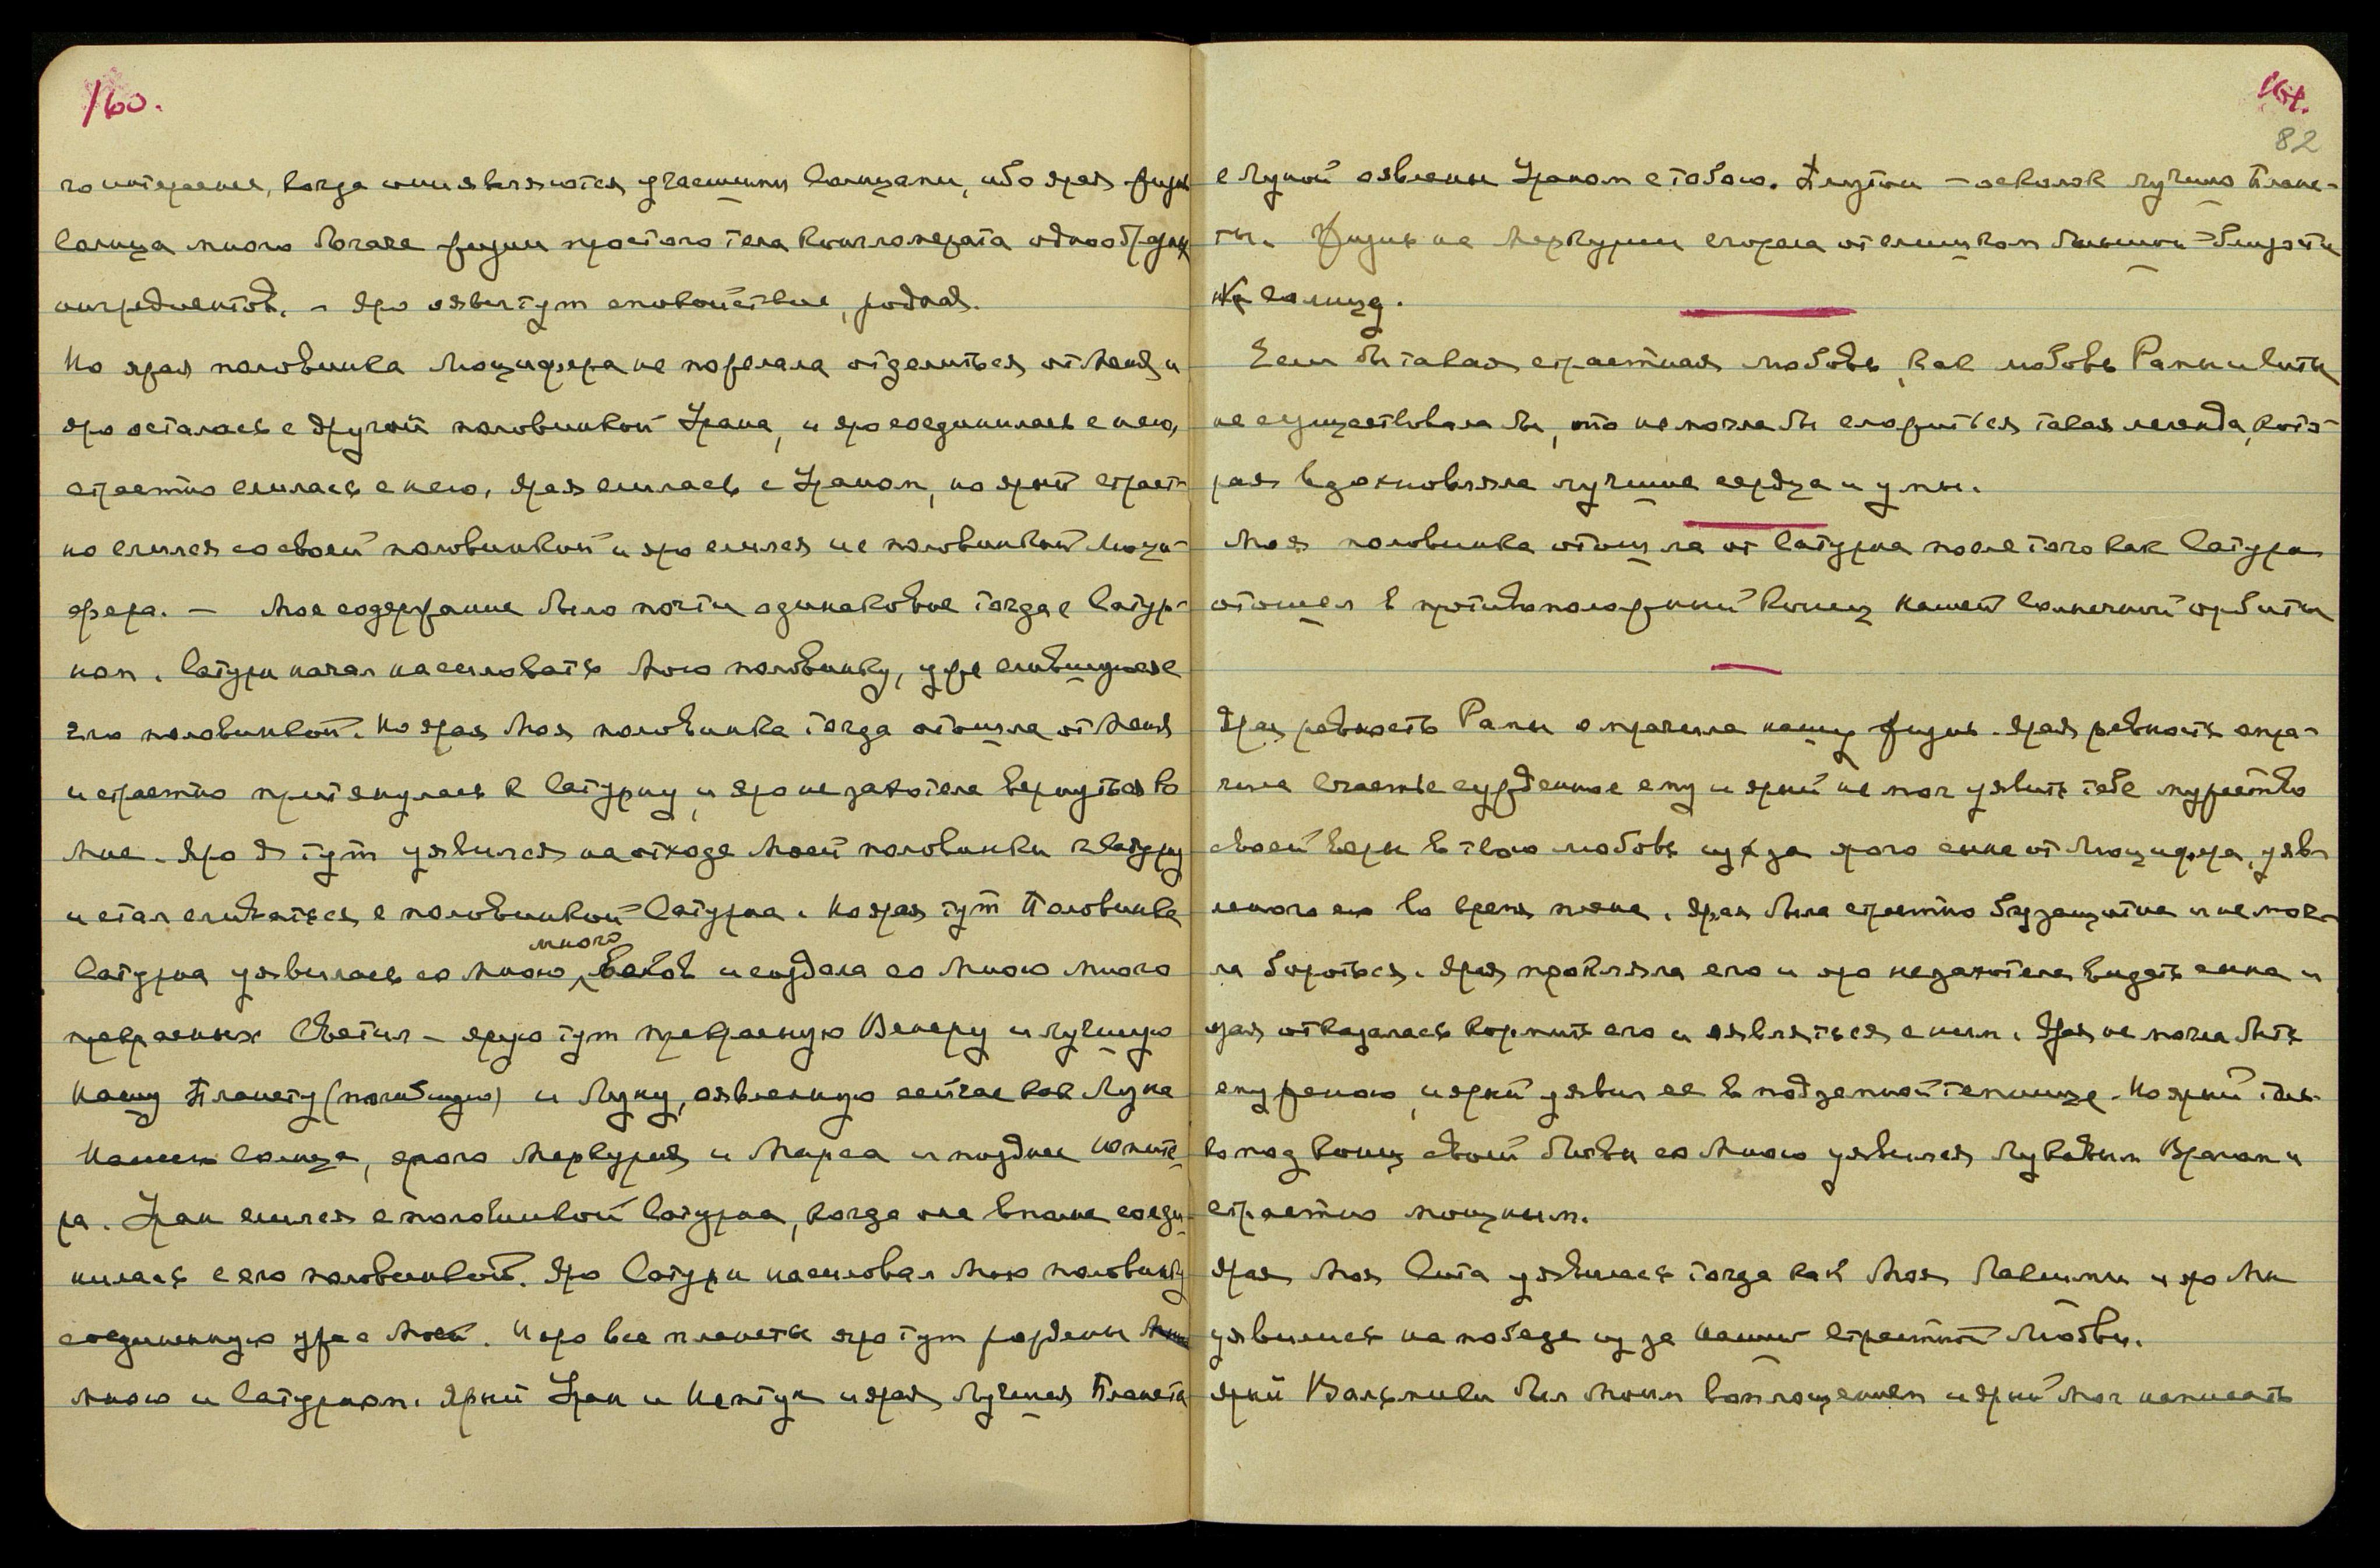 160.
го интереснее, когда они являются участниками Солнцами, ибо ярая жизнь
Солнца много богаче жизни простого тела конгломерата однообразных
ингредиентов. – Яро яви тут спокойствие, родная.
Но ярая половинка Люцифера не пожелала отделиться от Меня и
яро осталась с другой половинкой Урана, и яро соединилась с нею,
страстно слилась с нею. Ярая слилась с Ураном, но ярый страст-
но слился со своей половинкой и яро слился и с половинкой Люци-
фера. – Мое содержание было почти одинаковое тогда с Сатур-
ном. Сатурн начал насиловать Мою половинку, уже слившуюся с
Его половинкой. Но ярая Моя половинка тогда отошла от Меня
и страстно притянулась к Сатурну, и яро не захотела вернуться ко
Мне. Яро Я тут уявился на отходе Моей половинки к Сатурну
и стал сливаться с половинкой Сатурна. Но ярая тут Половинка
Сатурна уявилась со Мною много веков и создала со Мною много
прекрасных Светил – ярую тут прекрасную Венеру и лучшую
Нашу Планету (погибшую) и Луну, оявленную сейчас как Луна
Нашего Солнца, ярого Меркурия и Марса и позднее Юпите-
ра. Уран слился с половинкой Сатурна, когда она вполне соеди-
нилась с его половинкой. Яро Сатурн насиловал Мою половинку
соединенную уже с Моей. И яро все планеты яро тут рождены
Мною и Сатурном. Ярый Уран и Нептун и ярая Лучшая Планета
161.
82
с Луной оявлены Ураном с тобою. Плутон – осколок лучшей Плане-
ты. Жизнь на Меркурии сгорела от слишком большой близости
к Солнцу.
Если бы такая страстная любовь, как любовь Рамы и Ситы
не существовала бы, то не могла бы сложиться такая легенда, кото-
рая вдохновляла лучшие сердца и умы.
Моя половинка отошла от Сатурна после того как Сатурн
отошел в противоположный конец нашей Солнечной орбиты
Ярая ревность Рамы омрачила нашу жизнь. Ярая ревность омра-
чила счастье сужденное ему и ярый не мог уявить тебе мужество
своей веры в твою любовь из за ярого сына от Люцифера, уяв-
ленного ею во время плена. Ярая была страстно беззащитна и не мог-
ла бороться. Ярая прокляла его и яро не захотела видеть сына и
ярая отказалась кормить его и являться с ним. Ярая не могла быть
ему женою, и ярый уявил ее в подземной темнице. Но ярый толь-
ко под конец своей битвы со Мною уявился Лукавым Врагом и
страстно мощным.
Ярая Моя Сита уявилась тогда как Моя Лакшми и яро Мы
уявились на победе из за нашей страстной Любви.
Ярый Вальмики был Моим воплощением и ярый мог написать